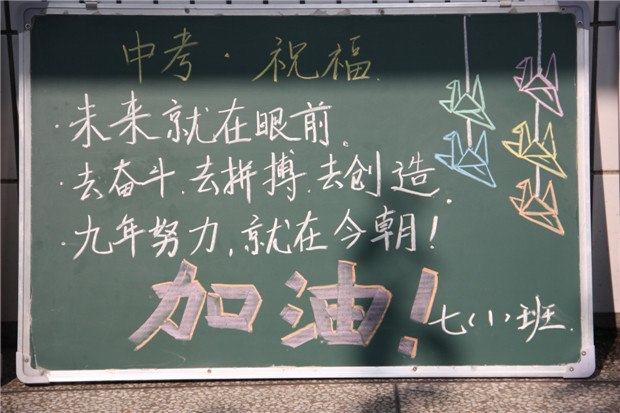 中考·祝福.
·未来就在眼前.
·去奋斗.去拼搏.去创造.
·九年努力,就在今朝!
加油!
七(1)班.